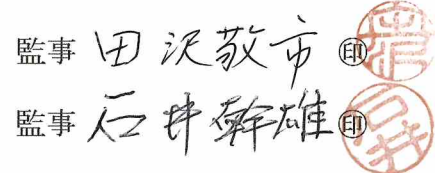 監事 田沢敬市 ㊞
監事 石井幹雄 ㊞